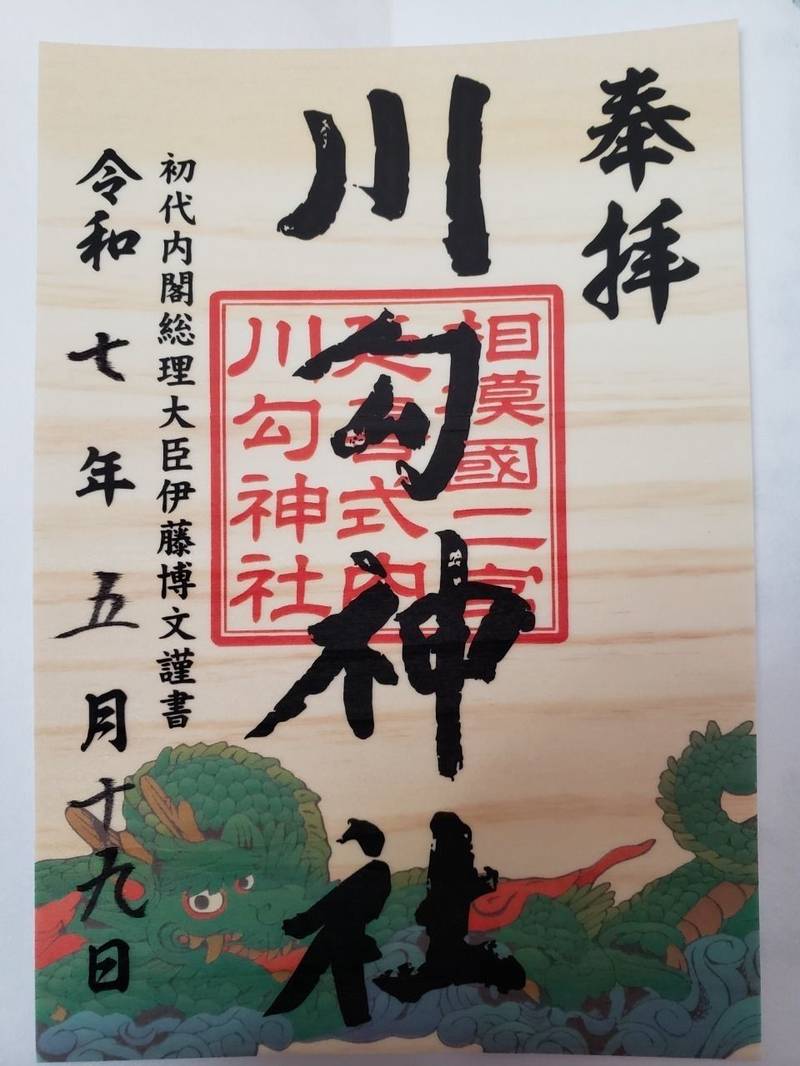 奉拝
川勾神社
相模國二宮
延喜式内
川勾神社
初代内閣総理大臣伊藤博文謹書
令和七年五月十九日